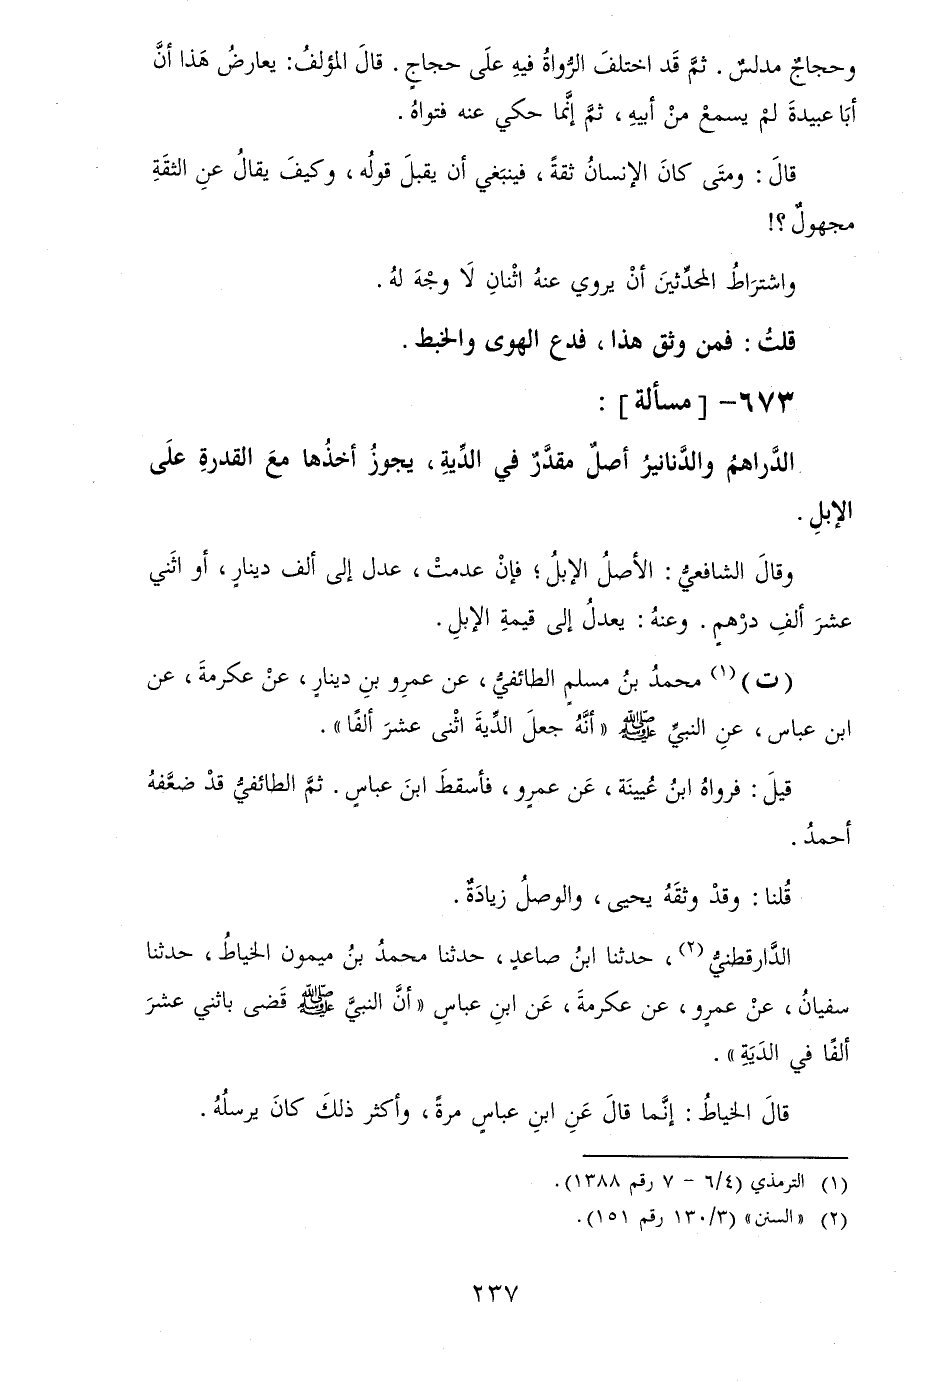 وحجاجٌ مدلسٌ . ثمَّ قَد اختلفَ الرُّواةُ فيهِ علَى حجاجٍ . قالَ المؤلفُ: يعارضُ هَذا أنَّ
أبَا عبيدةَ لمْ يسمعْ منْ أبيهِ ، ثمَّ إنَّما حكي عنه فتواهُ .
قالَ : ومتَى كانَ الإنسانُ ثقةً ، فينبَغي أن يقبلَ قولُه ، وكيفَ يقالُ عنِ الثقَةِ
مجهولٌ ؟!
واشترَاطُ المحدِّثينَ أنْ يروي عنهُ اثْنانِ لَا وجْهَ لهُ .
قلتُ : فمن وثق هذا ، فدع الهوى والخبط .
٦٧٣- [ مسألة ] :
الدَّراهمُ والدَّنانيرُ أصلٌ مقدَّرٌ في الدِّيةِ ، يجوزُ أخذُها معَ القدرةِ علَى
الإبلِ .
وقالَ الشافعيُّ : الأصلُ الإبلُ ؛ فإنْ عدمتْ ، عدل إلى ألف دينارٍ ، أو اثَني
عشرَ ألفِ درْهمٍ . وعنهُ : يعدلُ إلى قيمةِ الإبلِ .
( ت )(١) محمدُ بنُ مسلمٍ الطائفيُّ ، عن عمرِو بنِ دينارٍ ، عنْ عكرمةَ ، عن
ابن عباس ، عنِ النبيِّ ﷺ « أنَّهُ جعلَ الدِّيةَ اثْنى عشرَ ألفًا » .
قيلَ : فرواهُ ابنُ عُيينَة ، عَن عمرٍو ، فأسقطَ ابنَ عباسٍ . ثمَّ الطائفيُّ قدْ ضعَّفهُ
أحمدُ .
قُلنا : وقدْ وثقَهُ يحيى ، والوصلُ زيادَةٌ .
الدَّارقطنيُّ(٢) ، حدثنا ابنُ صاعدٍ ، حدثنا محمدُ بنُ ميمون الخياطُ ، حدثنا
سفيانُ ، عنْ عمرٍو ، عن عكرمةَ ، عَن ابنِ عباسٍ « أنَّ النبيَّ ﷺ قَضى باثني عشرَ
ألفًا في الديَةِ » .
قالَ الخياطُ : إنَّما قالَ عَنِ ابنِ عباسٍ مرةً ، وأكثر ذلكَ كانَ يرسلُهُ .
(١) الترمذي (٦/٤ - ٧ رقم ١٣٨٨).
(٢) «السنن» (١٣٠/٣ رقم ١٥١).
٢٣٧